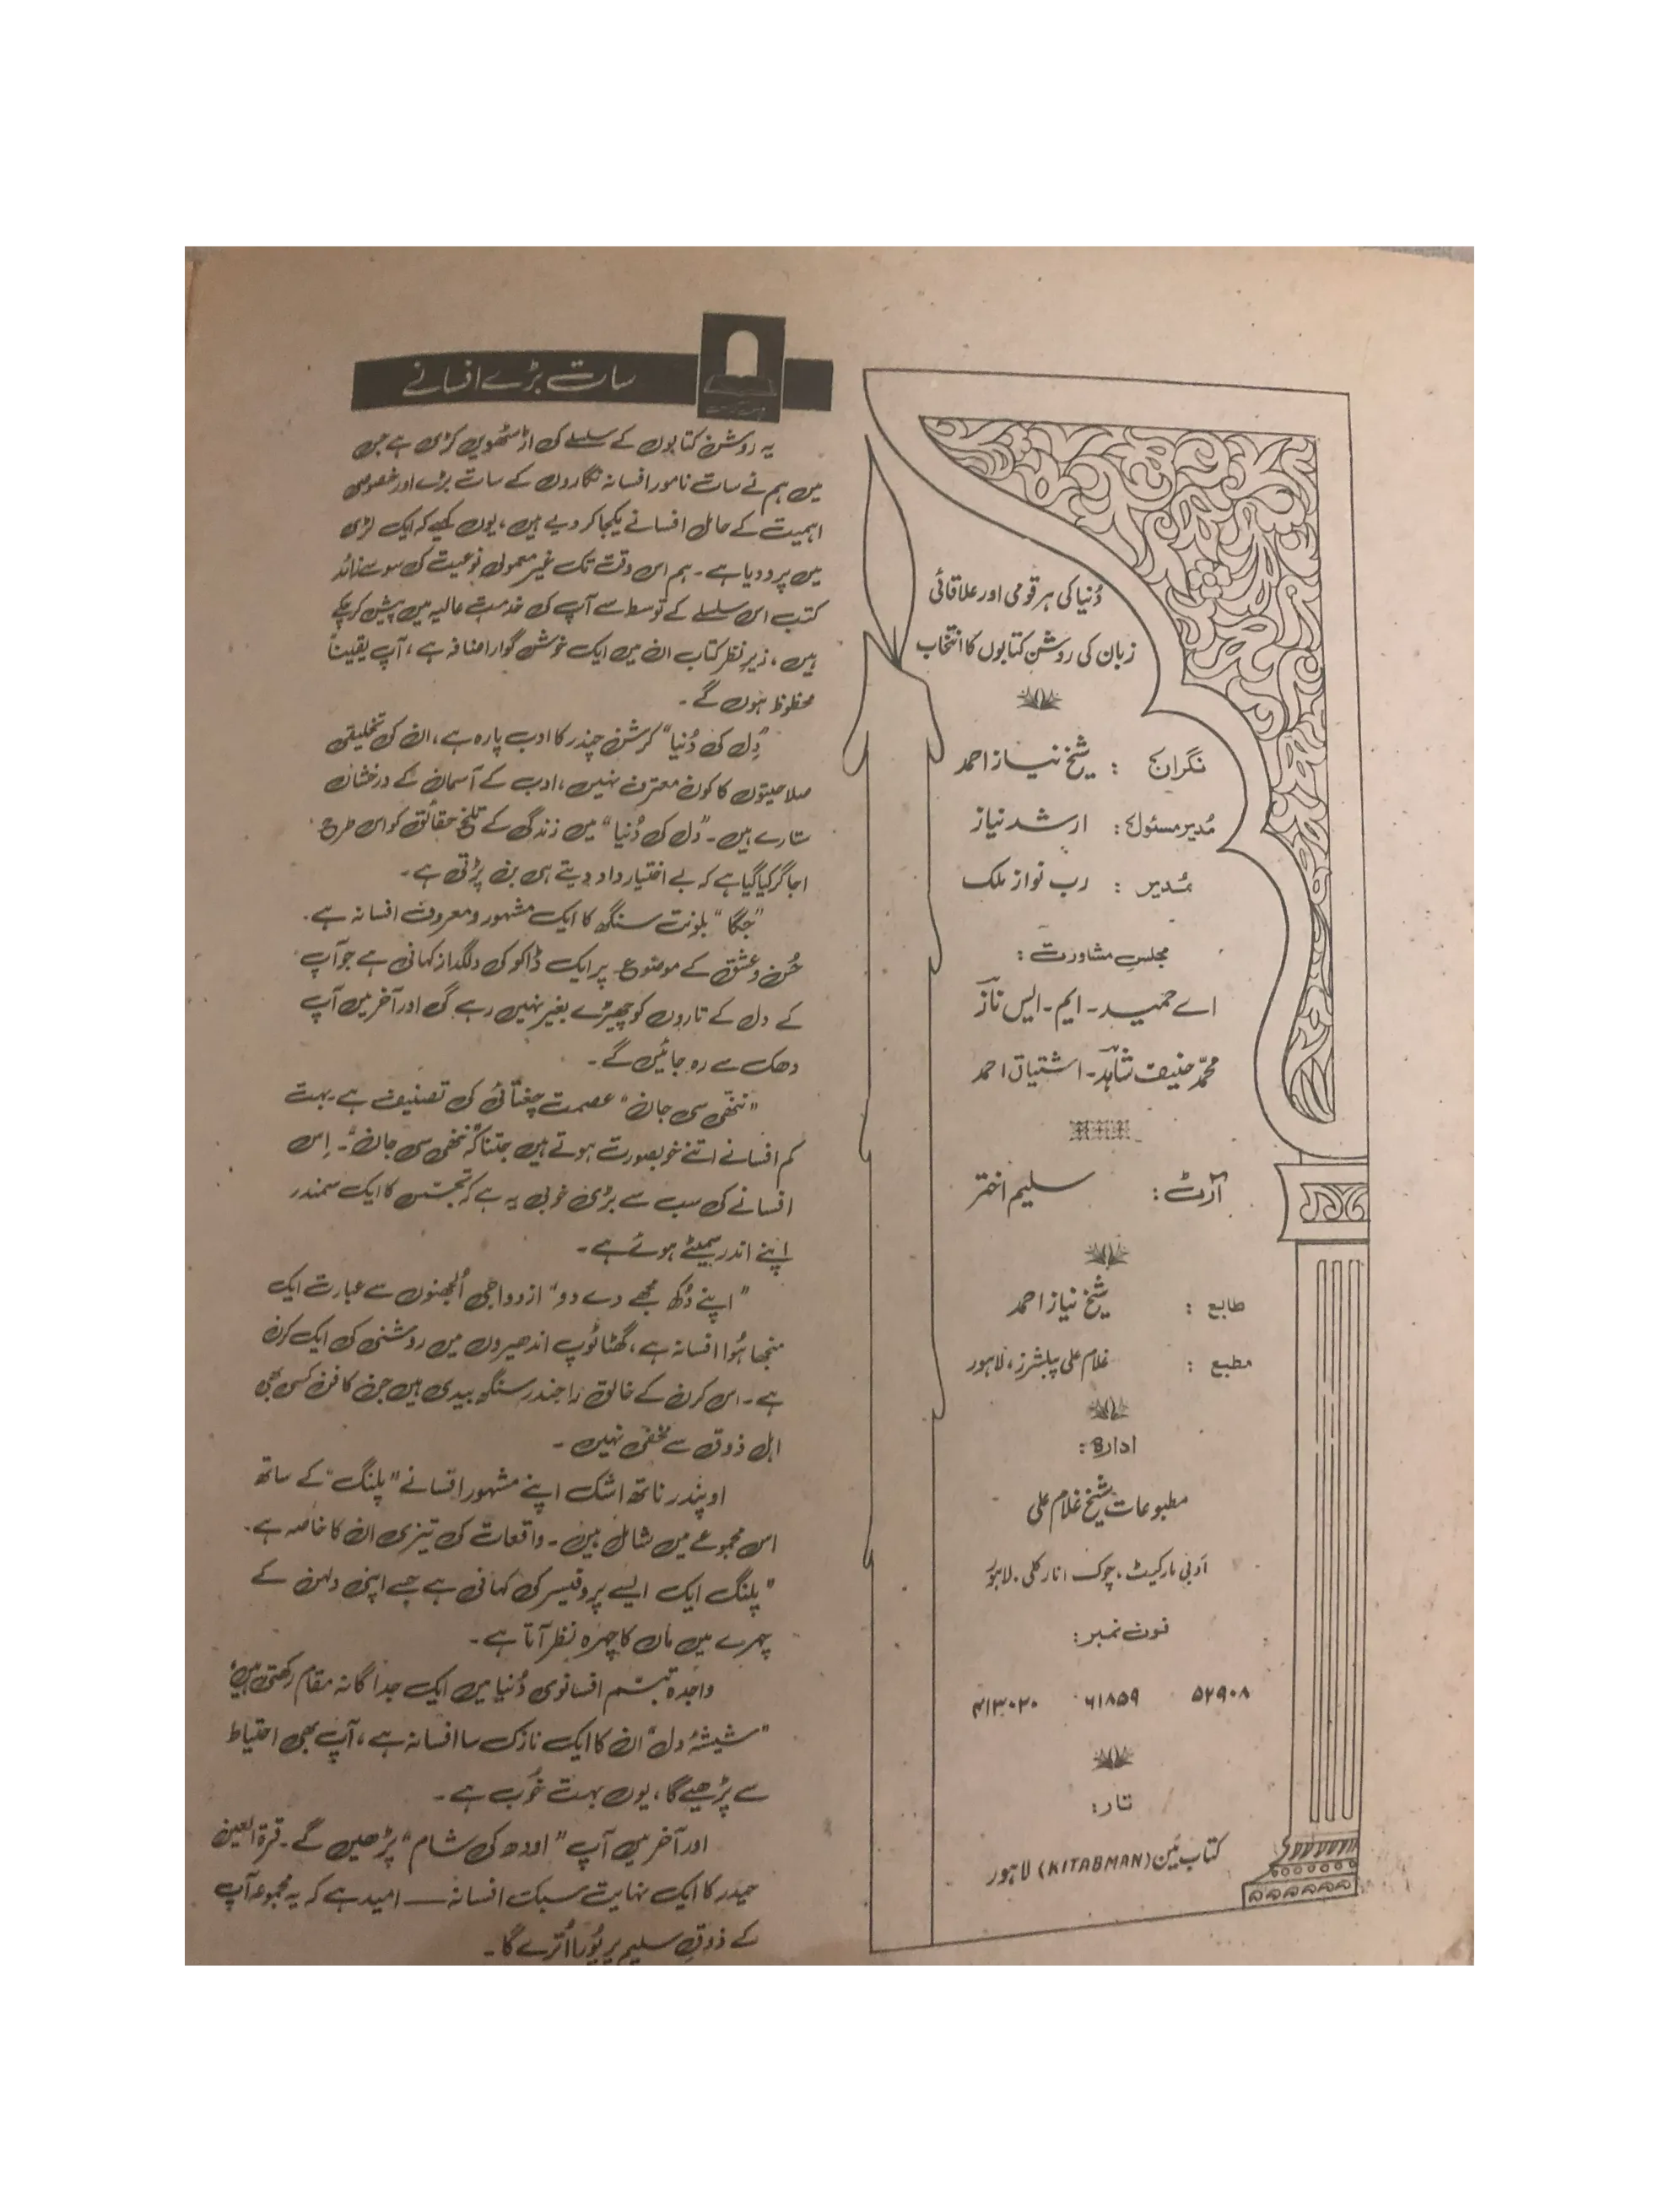 دُنیا کی ہر قومی اور علاقائی
زبان کی روشن کتابوں کا انتخاب
نگران : شیخ نیاز احمد
مُدیر مسئول : ارشد نیاز
مُدیر : رب نواز ملک
مجلسِ مشاورت :
اے حمید ۔ ایم ۔ ایس نازؔ
محمّد حنیف شاہدؔ ۔ اشتیاق احمد
آرٹ : سلیم اختر
طابع : شیخ نیاز احمد
مطبع : غلام علی پبلشرز، لاہور
ادارہ :
مطبوعات شیخ غلام علی
ادبی مارکیٹ، چوک انارکلی۔ لاہور
فون نمبر :
۵۲۹۰۸ ۶۱۸۵۹ ۴۱۳۰۲۰
تار :
کتاب مَین (KITABMAN) لاہور
سات بڑے افسانے
یہ روشن کتابوں کے سلسلے کی اڑسٹھویں کڑی ہے جس
میں ہم نے سات نامور افسانہ نگاروں کے سات بڑے اور خصوصی
اہمیت کے حامل افسانے یکجا کر دیے ہیں، یوں کہیے کہ ایک لڑی
میں پرو دیا ہے۔ ہم اس وقت تک غیر معمولی نوعیت کی سو سے زائد
کتب اس سلسلے کے توسط سے آپ کی خدمت عالیہ میں پیش کر چکے
ہیں، زیر نظر کتاب ان میں ایک خوش گوار اضافہ ہے، آپ یقیناً
محظوظ ہوں گے۔
"دِل کی دُنیا" کرشن چندر کا ادب پارہ ہے، ان کی تخلیقی
صلاحیتوں کا کون معترف نہیں، ادب کے آسمان کے درخشاں
ستارے ہیں۔ "دل کی دُنیا" میں زندگی کے تلخ حقائق کو اس طرح
اجاگر کیا گیا ہے کہ بے اختیار داد دیتے ہی بن پڑتی ہے۔
"جگّا" بلونت سنگھ کا ایک مشہور و معروف افسانہ ہے۔
حُسن و عشق کے موضوع پر ایک ڈاکو کی دلگداز کہانی ہے جو آپ
کے دل کے تاروں کو چھیڑے بغیر نہیں رہے گی اور آخر میں آپ
دھک سے رہ جائیں گے۔
"ننھّی سی جان" عصمت چغتائی کی تصنیف ہے۔ بہت
کم افسانے اتنے خوبصورت ہوتے ہیں جتنا کہ "ننھی سی جان"۔ اِس
افسانے کی سب سے بڑی خوبی یہ ہے کہ تجسّس کا ایک سمندر
اپنے اندر سمیٹے ہوئے ہے۔
"اپنے دُکھ مجھے دے دو" ازدواجی اُلجھنوں سے عبارت ایک
منجھا ہُوا افسانہ ہے، گھٹا ٹوپ اندھیروں میں روشنی کی ایک کرن
ہے۔ اس کرن کے خالق راجندر سنگھ بیدی ہیں جن کا فن کسی بھی
اہل ذوق سے مخفی نہیں۔
اوپندر ناتھ اشک اپنے مشہور افسانے "پلنگ" کے ساتھ
اس مجموعے میں شامل ہیں۔ واقعات کی تیزی ان کا خاصہ ہے۔
"پلنگ" ایک ایسے پروفیسر کی کہانی ہے جسے اپنی دلہن کے
چہرے میں ماں کا چہرہ نظر آتا ہے۔
واجدہ تبسّم افسانوی دُنیا میں ایک جداگانہ مقام رکھتی ہیں،
"شیشۂ دل" ان کا ایک نازک سا افسانہ ہے، آپ بھی احتیاط
سے پڑھیے گا، یوں بہت خُوب ہے۔
اور آخر میں آپ "اودھ کی شام" پڑھیں گے۔ قرۃ العین
حیدر کا ایک نہایت سبک افسانہ — امید ہے کہ یہ مجموعہ آپ
کے ذوقِ سلیم پر پُورا اُترے گا۔